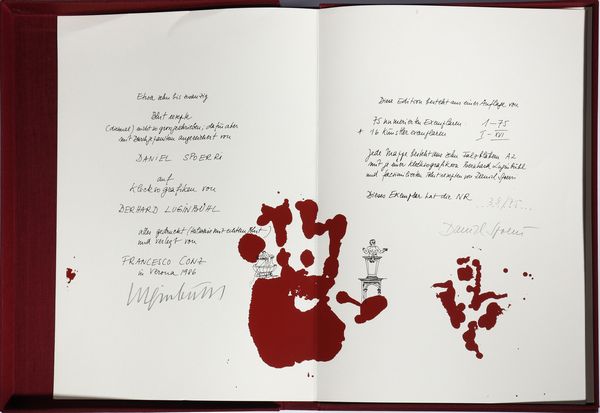 Etwa zehn bis zwanzig
Blut rezepte
(diesmal) nicht in gross geschrieben, dafür aber
mit angereichert von
DANIEL SPOERRI
auf
Klecksografieen von
BERNHARD LUGINBÜHL
alles gedruckt (teilweise mit echtem Blut)
und verlegt von
FRANCESCO CONZ
in Verona 1986
Luginbühl
Diese Edition besteht aus einer Auflage von
75 numerierten Exemplaren 1-75
+ 16 Künstlerexemplaren I-XVI
Jede Mappe besteht aus zehn Falzblättern A2
mit je einer Klecksografik von Bernhard Luginbühl
und Blutrezepten von Daniel Spoerri
Dieses Exemplar hat die NR
..33/75...
Daniel Spoerri